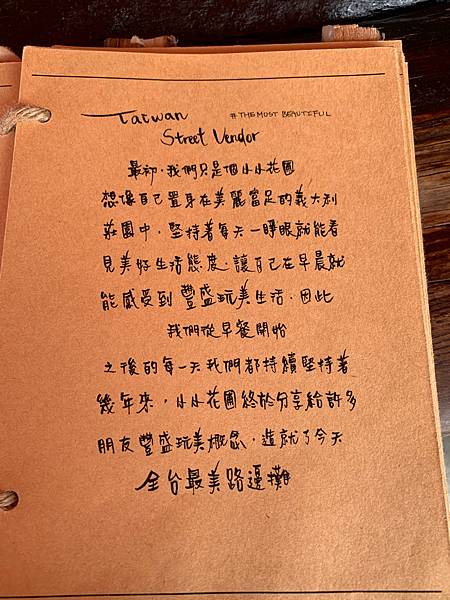 Taiwan #THE MOST BEAUTIFUL
Street Vendor
最初，我們只是個小小花園
想像自己置身在美麗富足的義大利
莊園中，堅持著每天一睜眼就能看
見美好生活態度，讓自己在早晨就
能感受到豐盛玩美生活，因此
我們從早餐開始
之後的每一天我們都持續堅持著
幾年來，小小花園終於分享給許多
朋友豐盛玩美概念，造就了今天
全台最美路邊攤